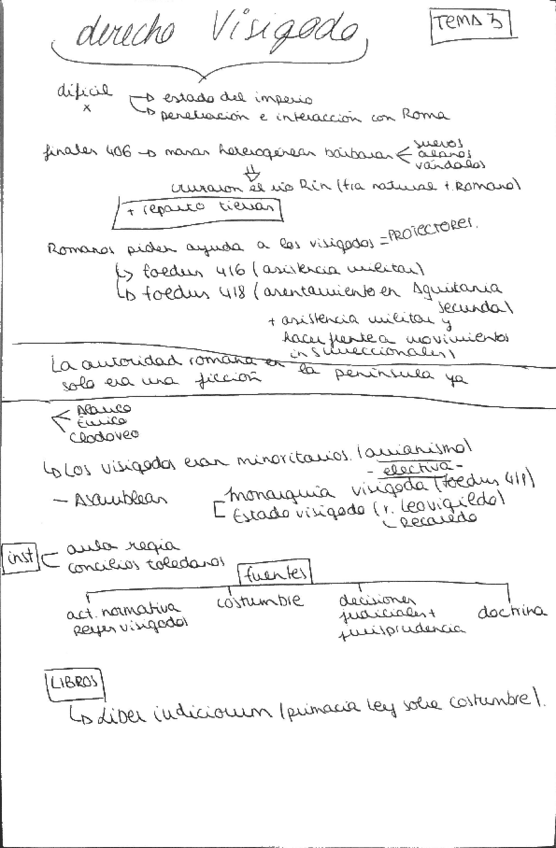 derecho Visigodo
TEMA 3
dificil x → estado del imperio
→ penetración e interacción con Roma
finales 406 → masas heterogéneas bárbaras < suevos
alanos
vándalos
⇓
cruzaron el río Rin (fra natural + Romano)
+ reparto tierras
Romanos piden ayuda a los visigodos = PROTECTORES.
↳ foedus 416 (asistencia militar)
↳ foedus 418 (asentamiento en Aquitania
secunda)
+ asistencia militar y
hacer frente a movimientos
insurreccionales)
La autoridad romana en la península ya
solo era una ficción
< Alarico
Eurico
Clodoveo
↳ Los visigodos eran minoritarios. (arrianismo)
- electiva -
— Asambleas
[ Monarquía visigoda (foedus 418)
Estado visigodo (r. Leovigildo)
↳ Recaredo
inst < aula regia
concilios toledanos
fuentes
act. normativa
Reyes visigodos
costumbre
decisiones
judiciales +
jurisprudencia
doctrina
LIBROS
↳ Liber iudiciorum (primacía ley sobre costumbre).